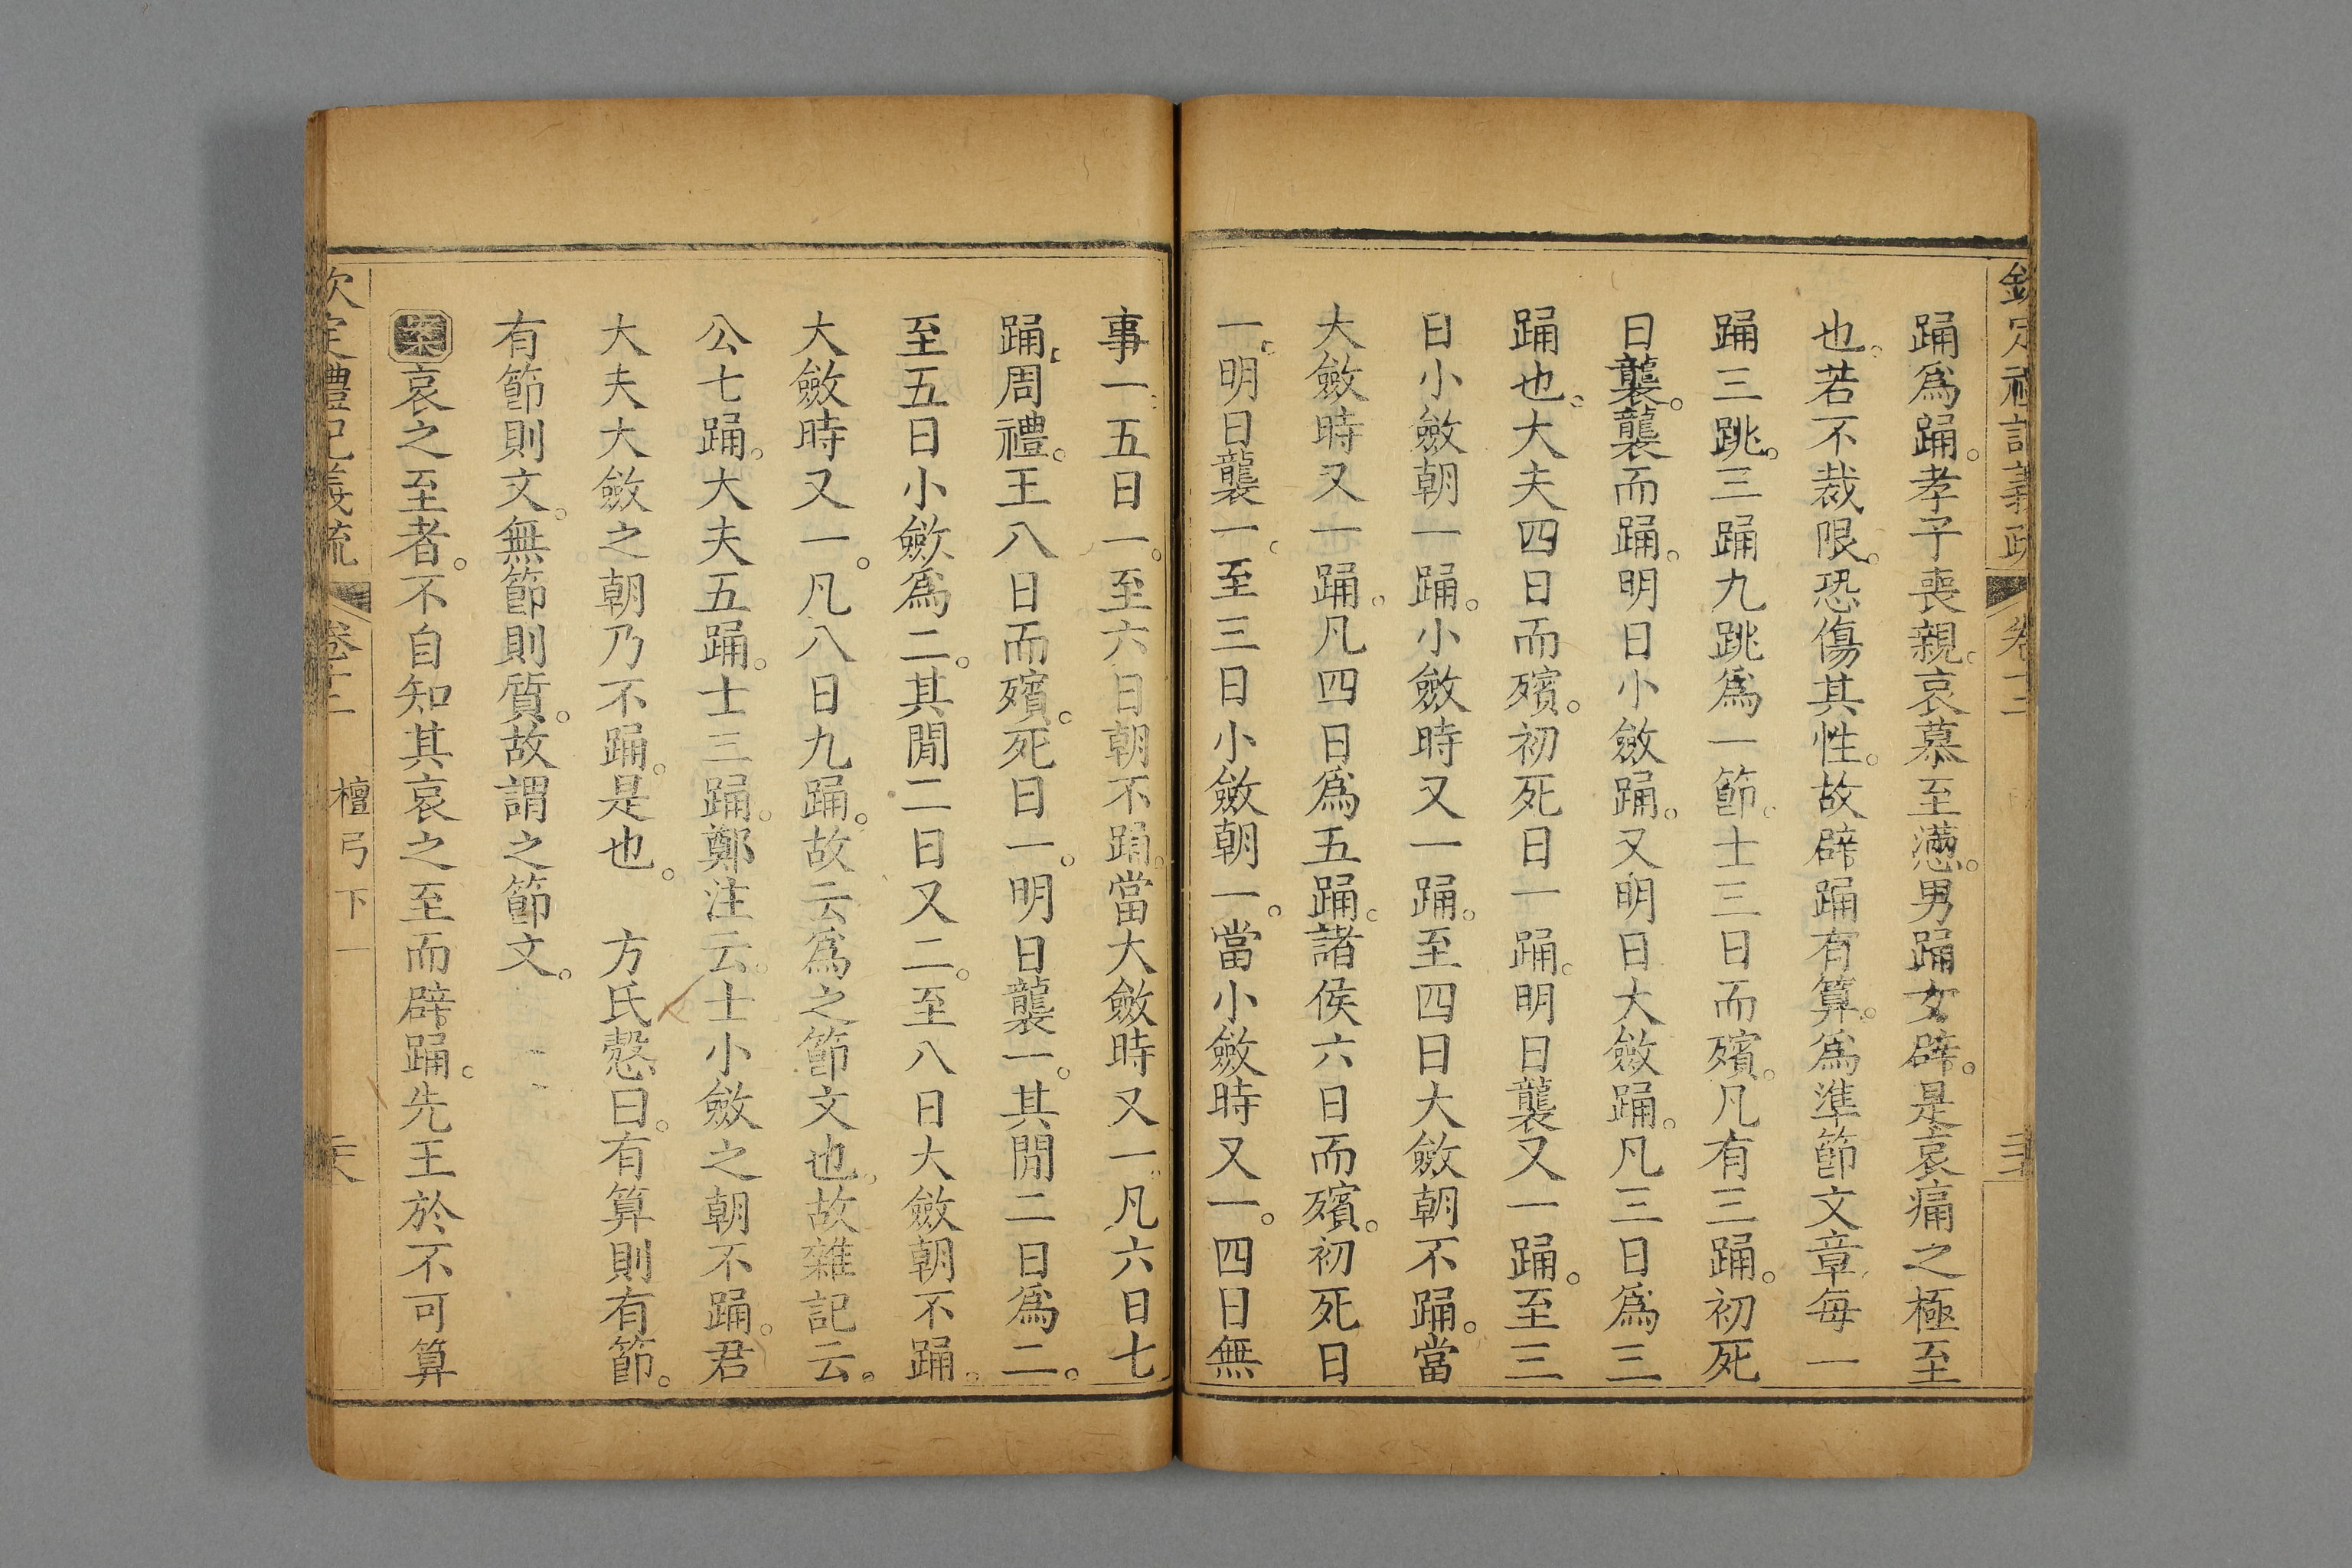 踊爲踊。孝子喪親。哀慕至懣。男踊女辟。是哀痛之極至
也。若不裁限。恐傷其性。故辟踊有算。爲準節文章每一
踊三跳。三踊九跳爲一節。士三日而殯。凡有三踊。初死
日襲。襲而踊。明日小斂踊。又明日大斂踊。凡三日爲三
踊也。大夫四日而殯。初死日一踊。明日襲又一踊。至三
日小斂朝一踊。小斂時又一踊。至四日大斂朝不踊。當
大斂時又一踊。凡四日爲五踊。諸侯六日而殯。初死日
一。明日襲一。至三日小斂朝一。當小斂時又一。四日無
事一。五日一。至六日朝不踊。當大斂時又一。凡六日七
踊。周禮。王八日而殯。死日一。明日襲一。其閒二日爲二。
至五日小斂爲二。其閒二日又二。至八日大斂朝不踊。
大斂時又一。凡八日九踊。故云爲之節文也。故雜記云。
公七踊。大夫五踊。士三踊。鄭注云。士小斂之朝不踊。君
大夫大斂之朝乃不踊。是也。 方氏慤曰。有算則有節。
有節則文。無節則質。故謂之節文。
案哀之至者。不自知其哀之至而辟踊。先王於不可算
欽定禮記義疏 卷十二 檀弓下一